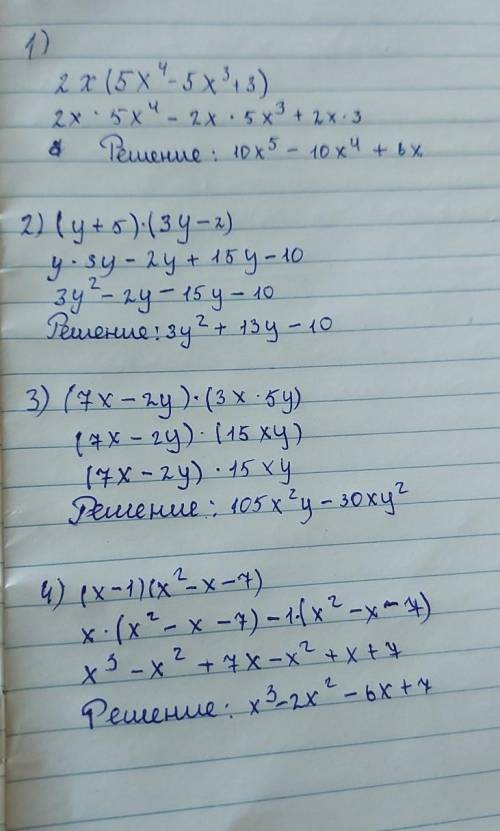 1)
2x(5x⁴-5x³+3)
2x · 5x⁴ - 2x · 5x³ + 2x·3
Решение: 10x⁵ - 10x⁴ + 6x
2) (y+5)·(3y-2)
y·3y - 2y + 15y - 10
3y² - 2y - 15y - 10
Решение: 3y² + 13y - 10
3) (7x-2y)·(3x·5y)
(7x-2y)·(15xy)
(7x-2y)·15xy
Решение: 105x²y - 30xy²
4) (x-1)(x²-x-7)
x·(x²-x-7)-1·(x²-x-7)
x³-x²+7x-x²+x+7
Решение: x³-2x²-6x+7